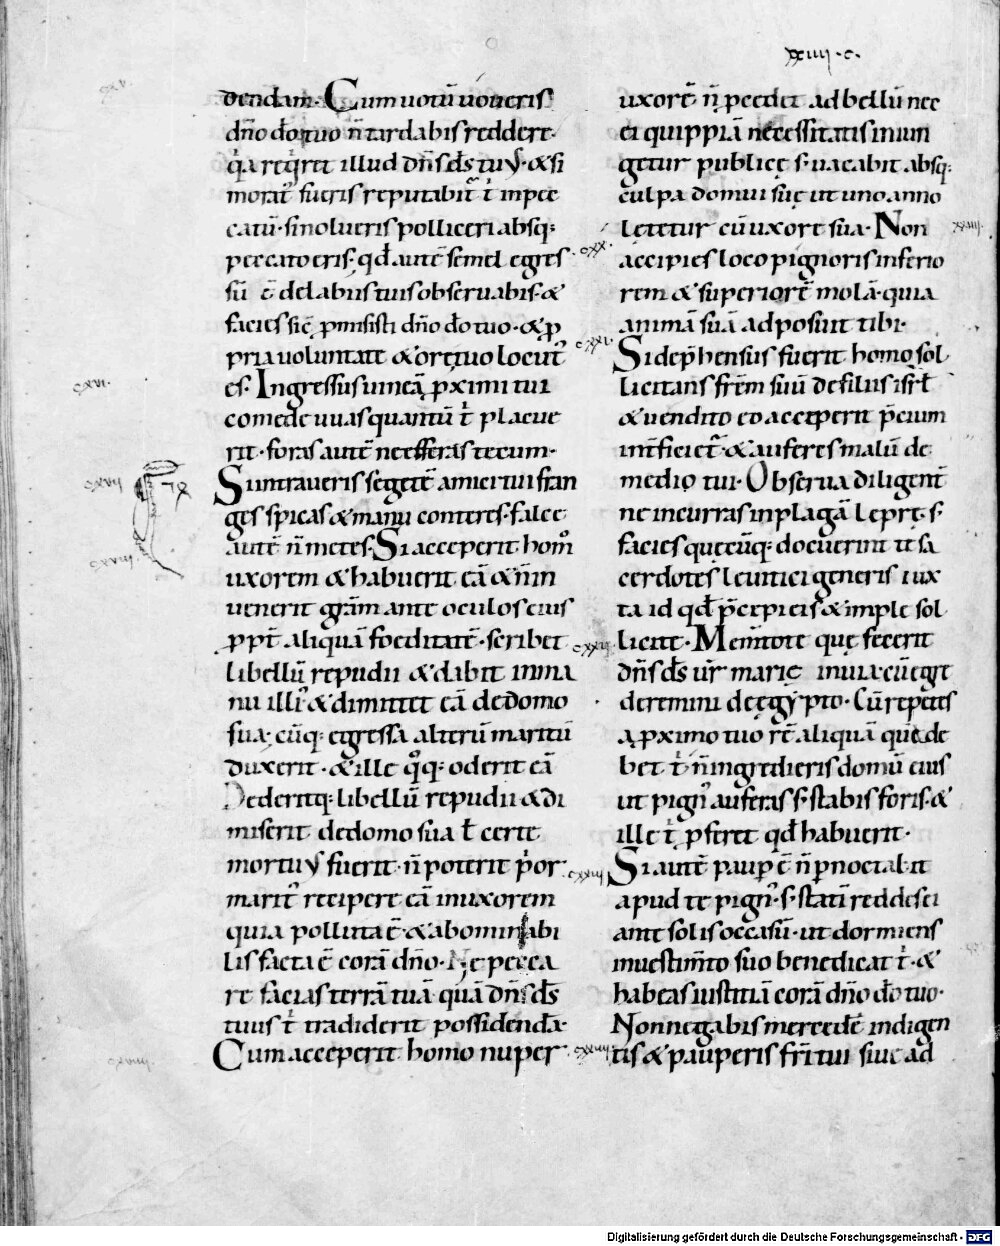 xxiiii·c·
dendam· Cum uotũ uoueris
dño dõ tuo ñ tardabis reddere·
qͥa reqͥret illud dñs ds̃ tuus· & si
morat᷒ fueris reputabit᷒ tͥ in pec
catũ· si nolueris polliceri absq;
peccato eris· qđ autẽ semel egres
sũ ẽ de labiis tuis observabis· &
facies sic̃ promisisti dño dõ tuo· & pro
pria uoluntate & ore tuo locut᷒
es· Ingressus uineã proximi tui
comede uuas quantũ tͥ placue
rit· foras autẽ ne efferas tecum·
Si intraueris segetẽ amici tui fran
ges spicas & manu conteres· falce
autẽ ñ metes· Si acceperit homo
uxorem & habuerit eã & ñ in
uenerit grãm ante oculos eius
propt̃ aliquã foeditatẽ· scribet
libellũ repudii & dabit in ma
nu illi᷒ & dimittet eã de domo
sua· cũq; egressa alterũ maritũ
duxerit· & ille qͦq; oderit eã
Dederitq; libellũ repudii & di
miserit de domo sua ł certe
mortuus fuerit· ñ poterit pͥor
marit᷒ recipere eã in uxorem
quia polluta ẽ· & abominabi
lis facta ẽ corã dño· Ne pecca
re facias terrã tuã· quã dñs ds̃
tuus tͥ tradiderit possidendã·
Cum acceperit homo nuper
uxorẽ ñ pcedet ad bellũ nec
ei quippiã necessitatis iniun
getur publicę· s· uacabit absq;
culpa domui suę ut uno anno
lętetur cũ uxore sua· Non
accipies loco pignoris inferio
rem & superiorẽ molã· quia
animã suã adposuit tibi·
Si dep̃hensus fuerit homo sol
licitans frẽm suũ de filiis isrł
& uendito eo acceperit p̃cium
int̃ficiet᷒· & auferes malũ de
medio tui· Observa diligent̃
ne incurras in plagã leprę· s·
facies quęcũq; docuerint te sa
cerdotes leuitici generis iux
ta id qđ p̃cepi eis & imple sol
licite· Mem̃tote quę fecerit
dñs ds̃ ur̃ marię in uia· cũ egre
deremini de ęgypto· Cũ repetes
a proximo tuo rẽ aliquã quã de
bet tͥ ñ ingredieris domũ eius
ut pign᷒ auferas· s· stabis foris· &
ille tͥ proferet qđ habuerit·
Si autẽ paup ẽ ñ pernoctabit
apud te pign᷒· s· statĩ reddes ei
ante solis occasũ· ut dormiens
in uestim̃to suo benedicat tͥ· &
habeas iustitiã corã dño dõ tuo·
Non negabis mercedẽ indigen
tis & pauperis fr̃i tui siue ad
cxvi·
cxvii
cxviii
cxx·
cxxi·
Digitalisierung gefördert durch die Deutsche Forschungsgemeinschaft - DFG